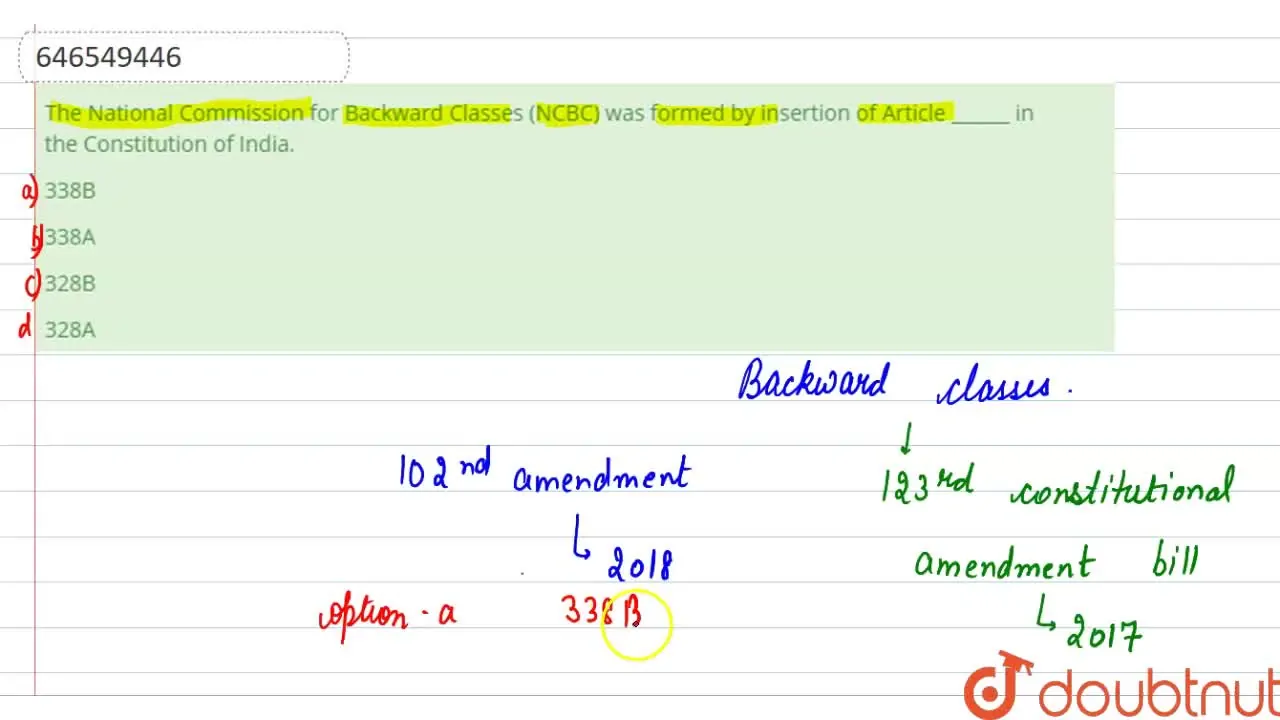 646549446
The National Commission for Backward Classes (NCBC) was formed by insertion of Article ______ in
the Constitution of India.
a) 338B
b) 338A
c) 328B
d 328A
Backward classes.
↓
102nd amendment
123rd constitutional
amendment bill
2018
option - a 338B
2017
doubtnut